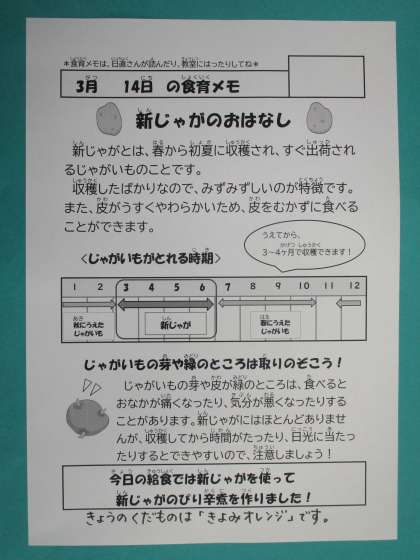 ＊食育メモは、日直さんが読んだり、教室にはったりしてね＊
3月　14日　の食育メモ
新じゃがのおはなし
新じゃがとは、春から初夏に収穫され、すぐ出荷され
るじゃがいものことです。
収穫したばかりなので、みずみずしいのが特徴です。
また、皮がうすくやわらかいため、皮をむかずに食べる
ことができます。
うえてから、
3～4ヶ月で収穫できます！
＜じゃがいもがとれる時期＞
1 2 3 4 5 6 7 8 9 10 11 12
秋にうえた
じゃがいも
新じゃが
春にうえた
じゃがいも
じゃがいもの芽や緑のところは取りのぞこう！
じゃがいもの芽や皮が緑のところは、食べると
おなかが痛くなったり、気分が悪くなったりする
ことがあります。新じゃがにはほとんどありませ
んが、収穫してから時間がたったり、日光に当たっ
たりするとできやすいので、注意しましょう！
今日の給食では新じゃがを使って
新じゃがのぴり辛煮を作りました！
きょうのくだものは「きよみオレンジ」です。